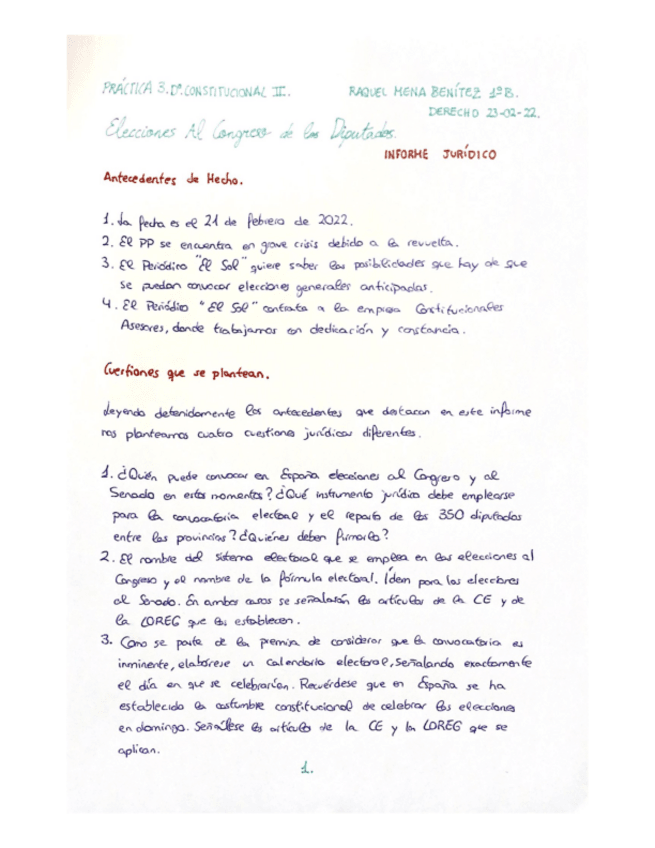 PRÁCTICA 3. Dº.CONSTITUCIONAL II.
RAQUEL MENA BENÍTEZ 1ºB.
DERECHO 23-02-22.
Elecciones Al Congreso de los Diputados.
INFORME JURÍDICO
Antecedentes de Hecho.
1. La fecha es el 21 de febrero de 2022.
2. El PP se encuentra en grave crisis debido a la revuelta.
3. El Periódico "El Sol" quiere saber las posibilidades que hay de que
se puedan convocar elecciones generales anticipadas.
4. El Periódico "El Sol" contrata a la empresa Constitucionales
Asesores, donde trabajamos con dedicación y constancia.
Cuestiones que se plantean.
Leyendo detenidamente los antecedentes que destacan en este informe
nos planteamos cuatro cuestiones jurídicas diferentes.
1. ¿Quién puede convocar en España elecciones al Congreso y al
Senado en estos momentos? ¿Qué instrumento jurídico debe emplearse
para la convocatoria electoral y el reparto de los 350 diputados
entre las provincias? ¿Quiénes deben firmarlo?
2. El nombre del sistema electoral que se emplea en las elecciones al
Congreso y el nombre de la fórmula electoral. Ídem para las elecciones
al Senado. En ambos casos se señalarán los artículos de la CE y de
la LOREG que las establecen.
3. Como se parte de la premisa de considerar que la convocatoria es
inminente, elabórese un calendario electoral, señalando exactamente
el día en que se celebrarían. Recuérdese que en España se ha
establecido la costumbre constitucional de celebrar las elecciones
en domingo. Señálese los artículos de la CE y la LOREG que se
aplican.
1.